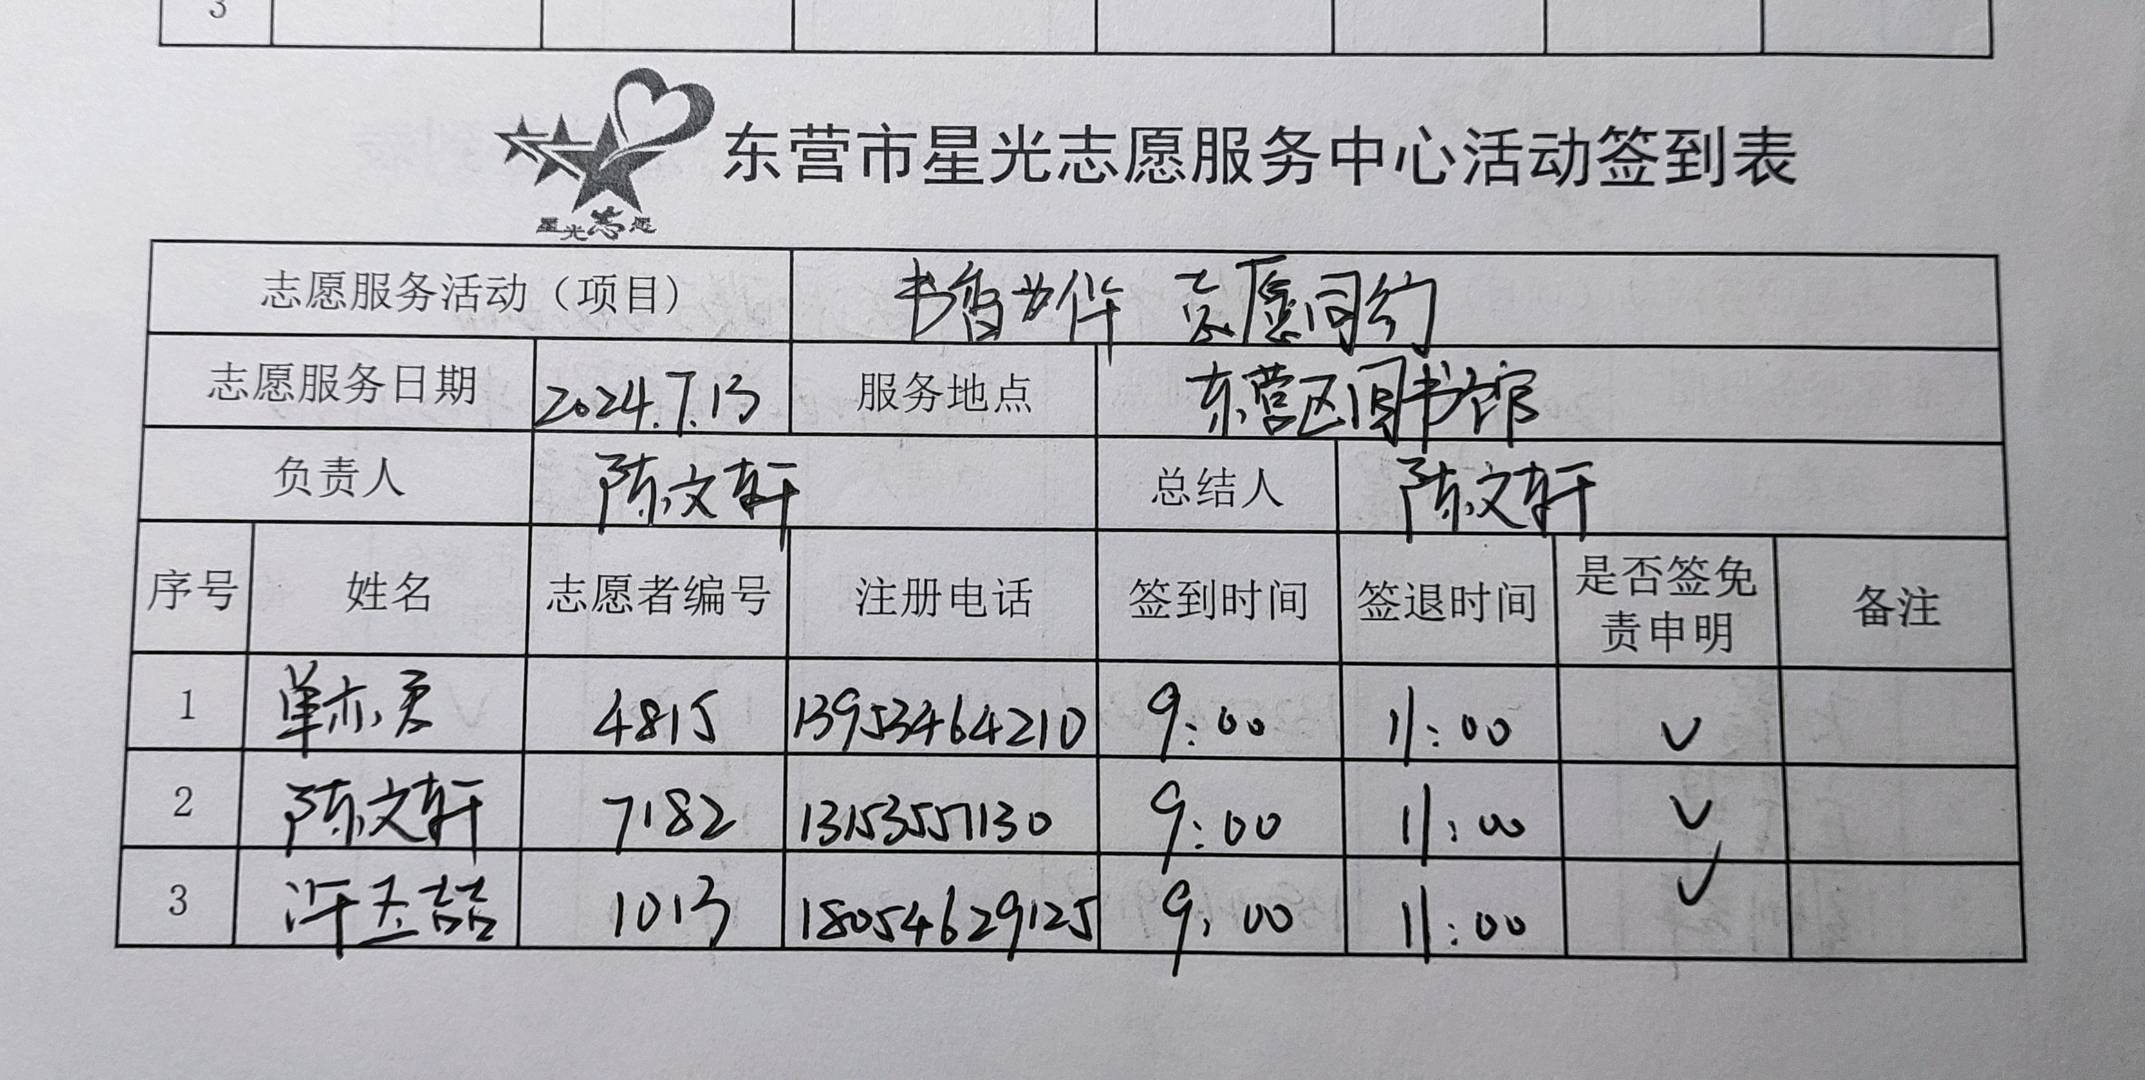 3
东营市星光志愿服务中心活动签到表
星光志愿
志愿服务活动（项目） 书香为伴 志愿同约
志愿服务日期 2024.7.13 服务地点 东营区图书馆
负责人 陈文轩 总结人 陈文轩
序号 姓名 志愿者编号 注册电话 签到时间 签退时间 是否签免责申明 备注
1 单亦君 4815 13953464210 9:00 11:00 ✓
2 陈文轩 7182 13153557130 9:00 11:00 ✓
3 许玉喆 1013 18054629125 9:00 11:00 ✓